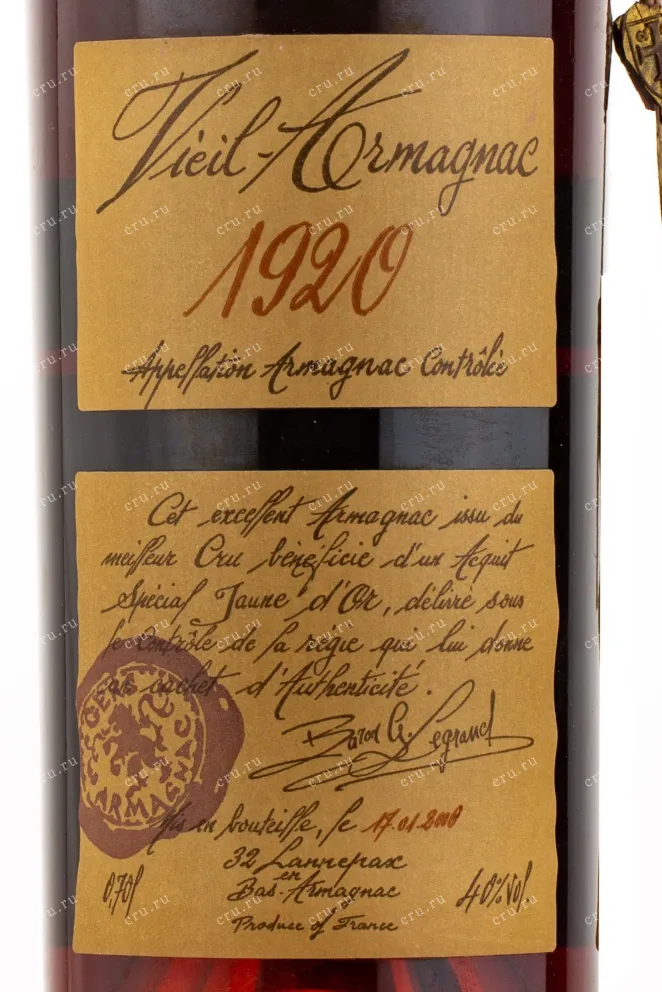 Vieil-Armagnac
1920
Appellation Armagnac Contrôlée
Cet excellent Armagnac issu du
meilleur Cru bénéficie d'un Acquit
Spécial Jaune d'Or, délivré sous
le Contrôle de la régie qui lui donne
son cachet d'Authenticité.
Baron G. Legrand
ARMAGNAC
Mis en bouteille, le 17.01.2008
32 Lannepax
en
0,70l Bas-Armagnac 40% Vol.
Produce of France
cru.ru